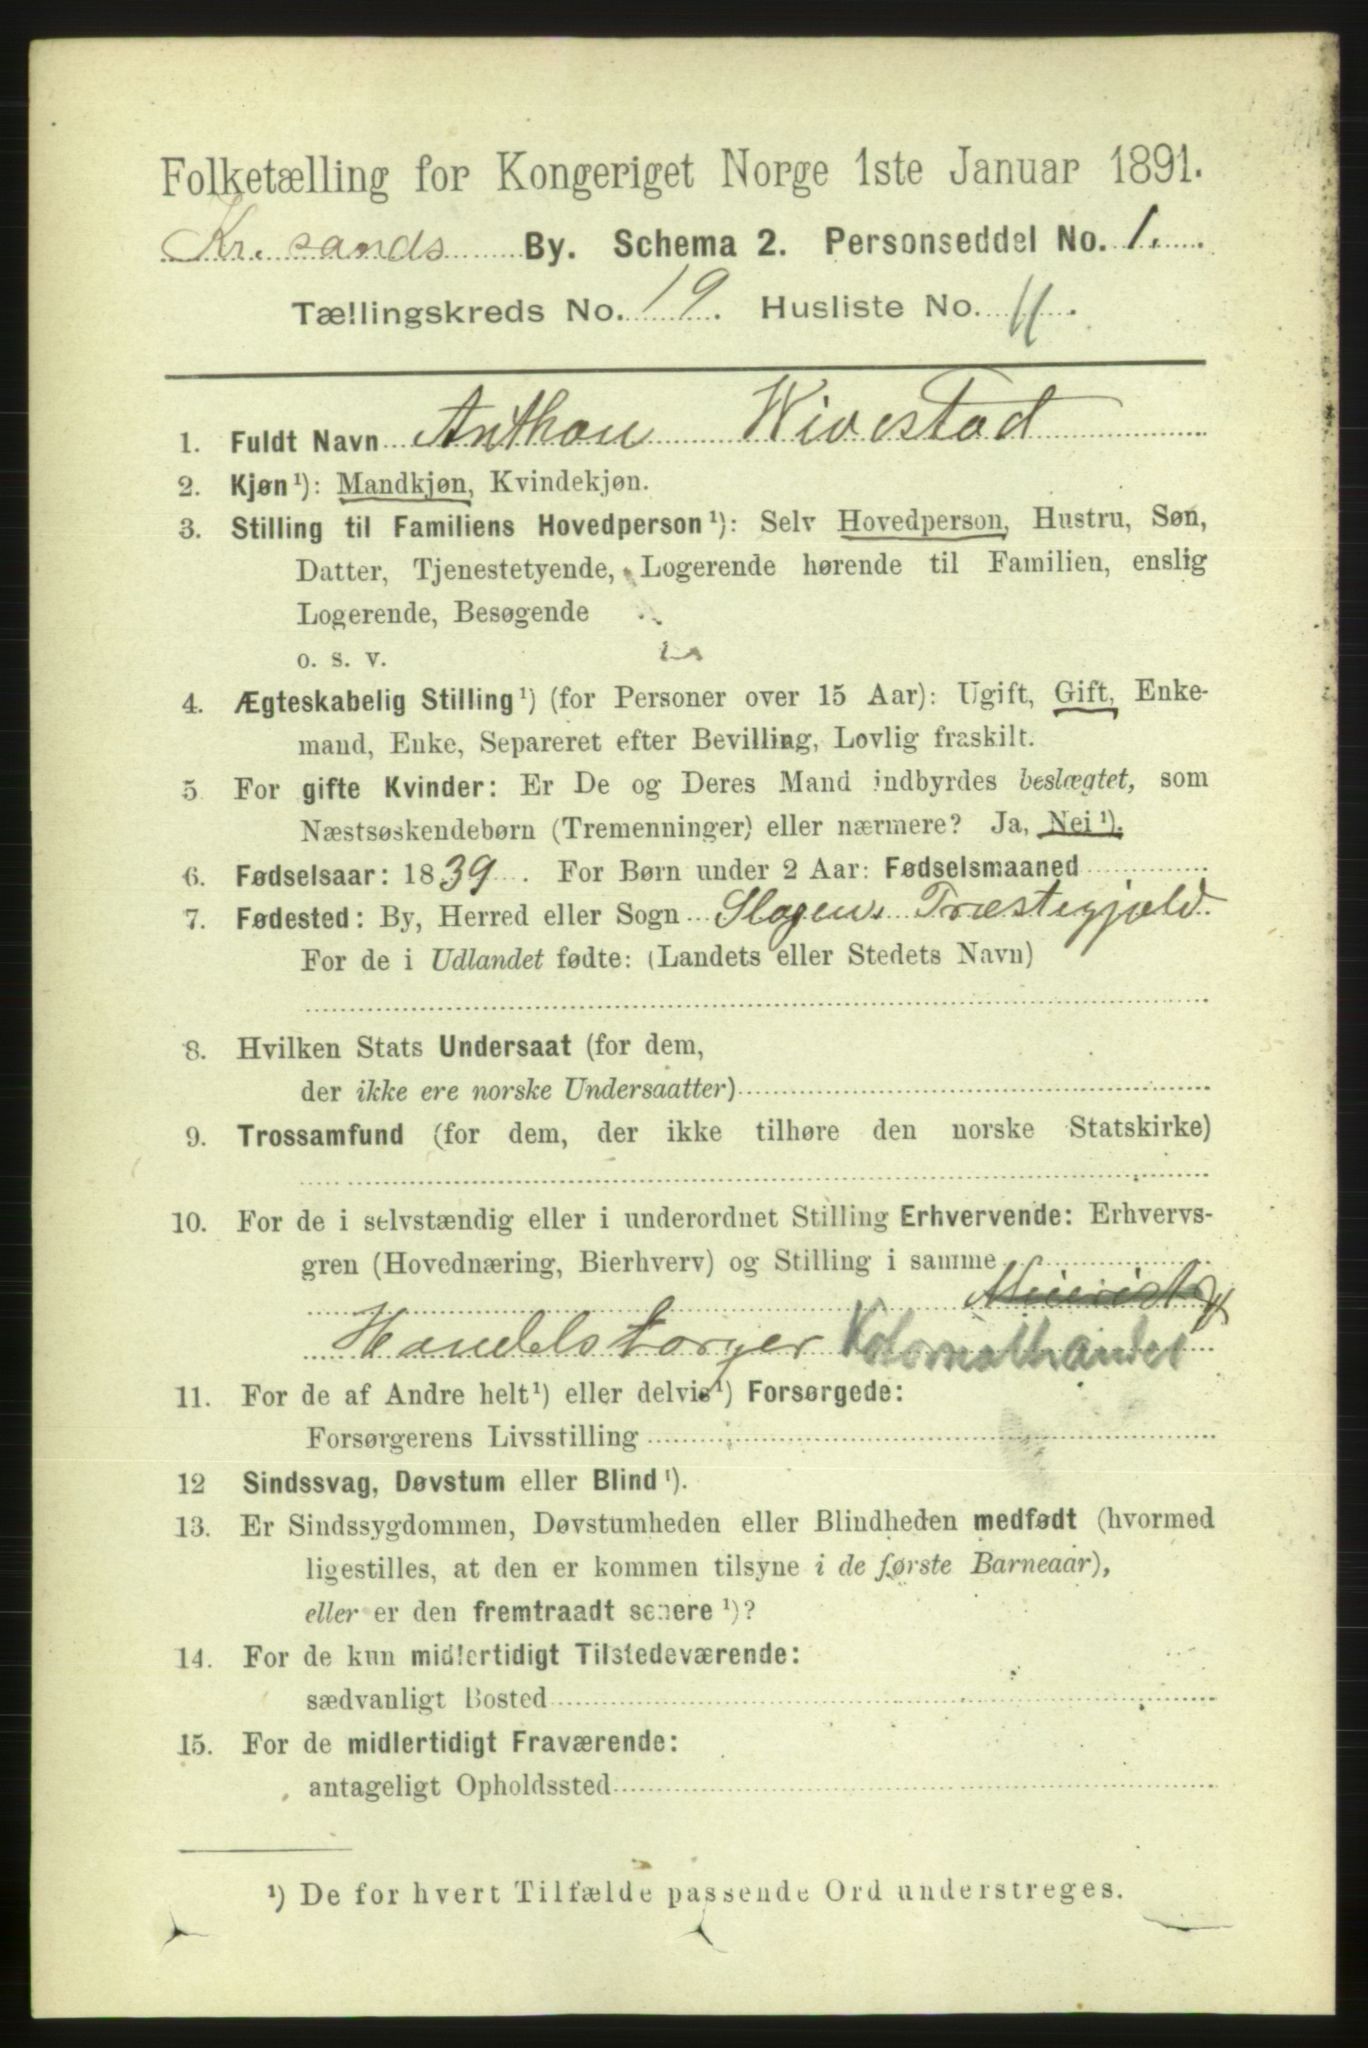 Folketælling for Kongeriget Norge 1ste Januar 1891.
Kr.sands By. Schema 2. Personseddel No. 1.
Tællingskreds No. 19. Husliste No. 11.
1. Fuldt Navn Anthon Wivestad
2. Kjøn¹): Mandkjøn, Kvindekjøn.
3. Stilling til Familiens Hovedperson¹): Selv Hovedperson, Hustru, Søn,
Datter, Tjenestetyende, Logerende hørende til Familien, enslig
Logerende, Besøgende
o. s. v.
4. Ægteskabelig Stilling¹) (for Personer over 15 Aar): Ugift, Gift, Enke-
mand, Enke, Separeret efter Bevilling, Lovlig fraskilt.
5 For gifte Kvinder: Er De og Deres Mand indbyrdes beslægtet, som
Næstsøskendebørn (Tremenninger) eller nærmere? Ja, Nei¹).
6. Fødselsaar: 1839. For Børn under 2 Aar: Fødselsmaaned
7. Fødested: By, Herred eller Sogn Slagens Præstegjæld.
For de i Udlandet fødte: (Landets eller Stedets Navn)
8. Hvilken Stats Undersaat (for dem,
der ikke ere norske Undersaatter)
9. Trossamfund (for dem, der ikke tilhøre den norske Statskirke)
10. For de i selvstændig eller i underordnet Stilling Erhvervende: Erhvervs-
gren (Hovednæring, Bierhverv) og Stilling i samme
Handelsborger Kolonialhandel
11. For de af Andre helt¹) eller delvis¹) Forsørgede:
Forsørgerens Livsstilling
12 Sindssvag, Døvstum eller Blind¹).
13. Er Sindssygdommen, Døvstumheden eller Blindheden medfødt (hvormed
ligestilles, at den er kommen tilsyne i de første Barneaar),
eller er den fremtraadt senere¹)?
14. For de kun midlertidigt Tilstedeværende:
sædvanligt Bosted
15. For de midlertidigt Fraværende:
antageligt Opholdssted
¹) De for hvert Tilfælde passende Ord understreges.